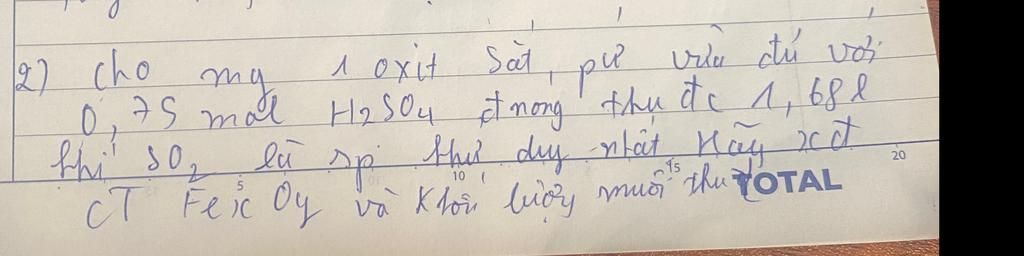 2) Cho mg 1 oxit sắt, pứ vừa đủ với
0,75 mol H2SO4 đ nóng thu đc 1,68l
khí SO2 là sp khử duy nhất Hãy xđ
CT FexOy và khối lượng muối thu đ
5 10 15 20
TOTAL